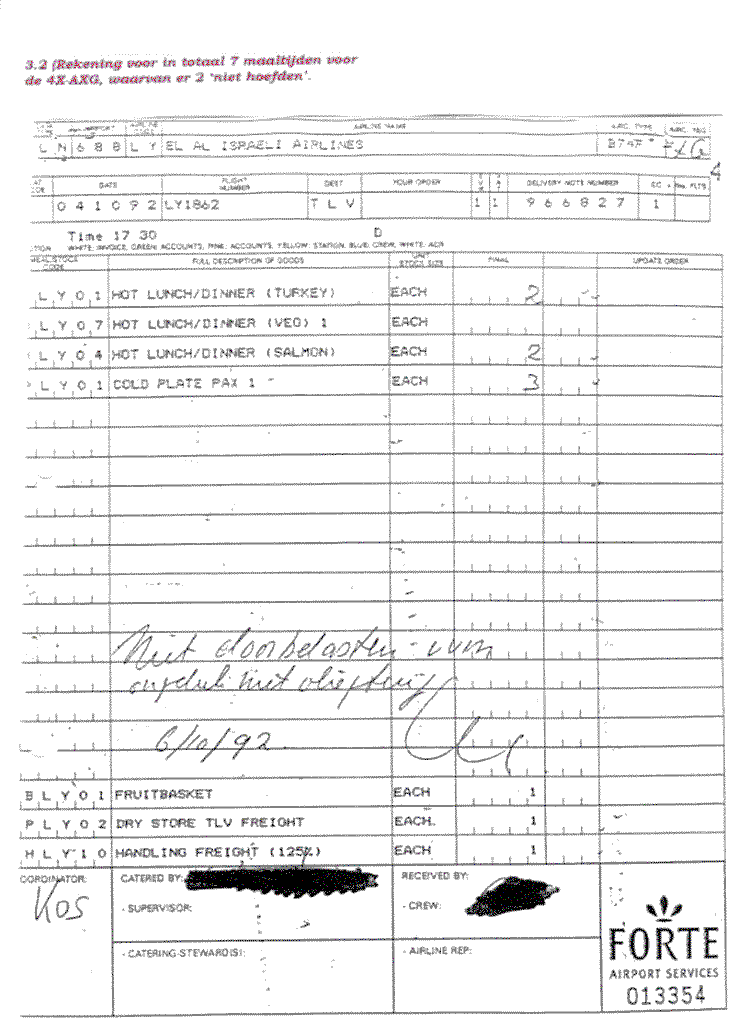 3.2 (Rekening voor in totaal 7 maaltijden voor
de 4X-AXG, waarvan er 2 'niet hoefden'.
AIRLINE NAME
L N 6 8 8 L Y EL AL ISRAELI AIRLINES B747 XG
4
DATE FLIGHT NUMBER DEST YOUR ORDER DELIVERY NOTE NUMBER
0 4 1 0 9 2 LY1862 T L V 1 1 9 6 6 8 2 7 1
Time 17 30 D
WHITE: INVOICE, GREEN: ACCOUNTS, PINK: ACCOUNTS, YELLOW: STATION, BLUE: CREW, WHITE: ACR
MEAL/STOCK CODE FULL DESCRIPTION OF GOODS UNIT STOCK SIZE FINAL UPDATE ORDER
L Y 0 1 HOT LUNCH/DINNER (TURKEY) EACH 2
L Y 0 7 HOT LUNCH/DINNER (VEG) 1 EACH
L Y 0 4 HOT LUNCH/DINNER (SALMON) EACH 2
L Y 0 1 COLD PLATE PAX 1 EACH 3
Niet doorbelasten - ivm
ongeluk met vliegtuig
6/10/92
B L Y 0 1 FRUITBASKET EACH 1
P L Y 0 2 DRY STORE TLV FREIGHT EACH. 1
H L Y 1 0 HANDLING FREIGHT (125%) EACH 1
CORDINATOR: CATERED BY: RECEIVED BY:
KOS - SUPERVISOR: - CREW:
- CATERING-STEWARD(S): - AIRLINE REP:
FORTE
AIRPORT SERVICES
013354